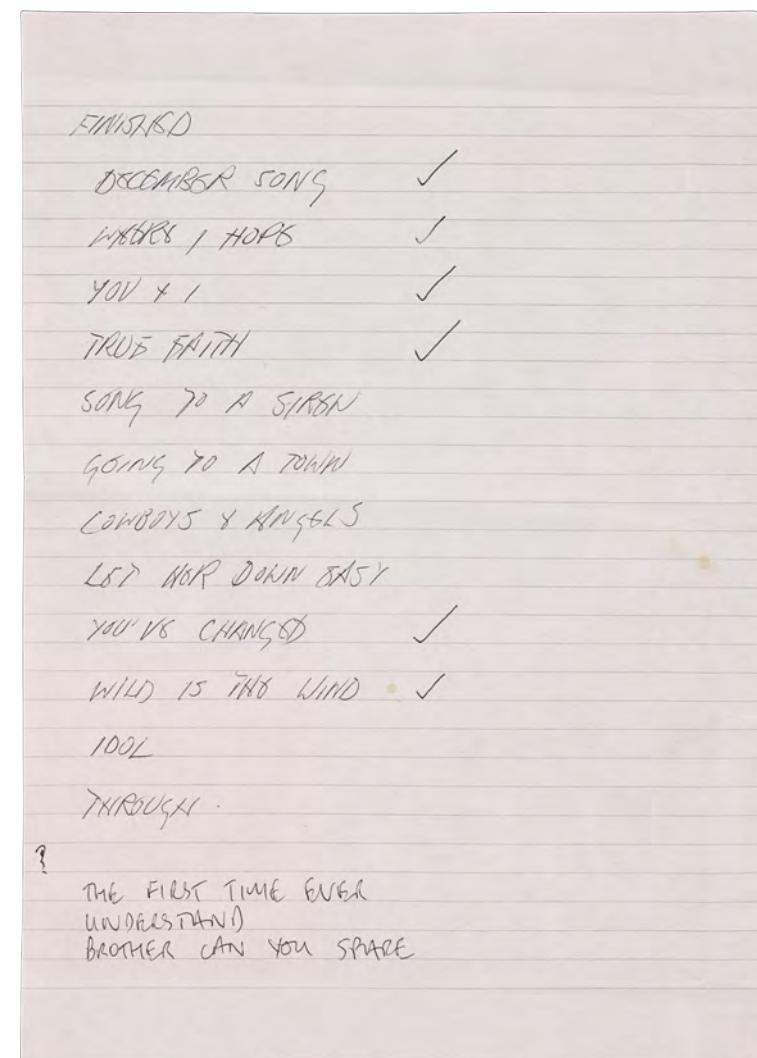 FINISHED
DECEMBER SONG ✓
WHERE I HOPE ✓
YOU & I ✓
TRUE FAITH ✓
SONG TO A SIREN
GOING TO A TOWN
COWBOYS & ANGELS
LET HER DOWN EASY
YOU'VE CHANGED ✓
WILD IS THE WIND ✓
IDOL
THROUGH.
?
THE FIRST TIME EVER
UNDERSTAND
BROTHER CAN YOU SPARE